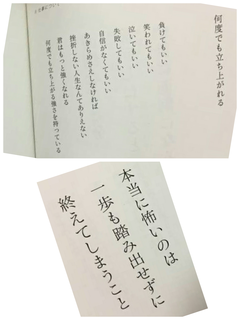 何度でも立ち上がれる
負けてもいい
笑われてもいい
泣いてもいい
失敗してもいい
自信がなくてもいい
あきらめさえしなければ
挫折しない人生なんてありえない
君はもっと強くなれる
何度でも立ち上がる強さを持っている
本当に怖いのは
一歩も踏み出せずに
終えてしまうこと